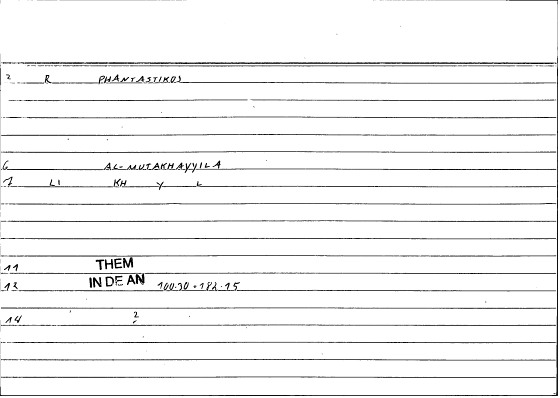 2 R PHANTASTIKOS
6 AL-MUTAKHAYYILA
7 LI KH Y L
11 THEM
13 IN DE AN 100.30 = 182.15
14 2